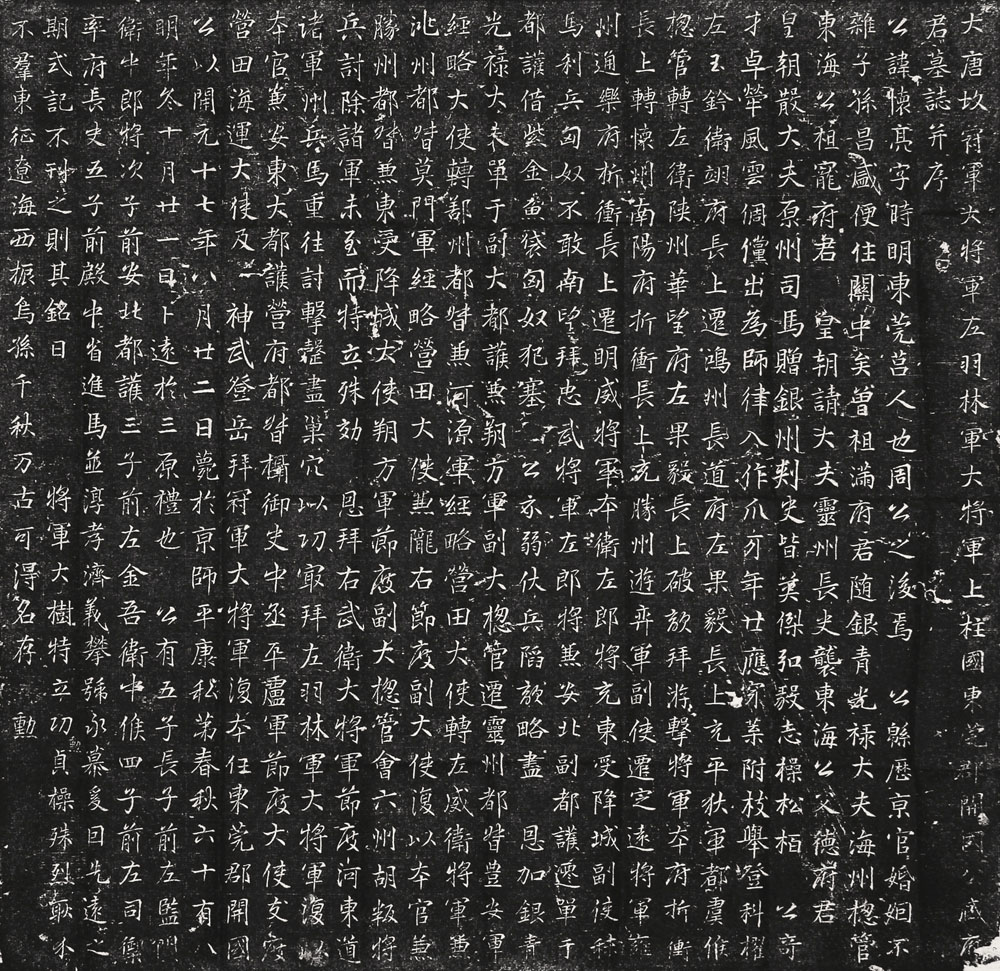 大唐故冠軍大將軍左羽林軍大將軍上柱國東莞郡開國公臧府
君墓誌并序
公諱懷亮字時明東莞莒人也周公之後焉 公緜歷京官婚姻不
雜子孫昌盛便住關中矣曾祖滿府君隨銀青光祿大夫海州揔管
東海公祖寵府君 皇朝請大夫靈州長史襲東海公父德府君
皇朝散大夫原州司馬贈銀州刾史皆英傑弘毅志操松栢 公奇
才卓犖風雲倜儻出為師律入作爪牙年廿應家業附枝舉登科擢
左玉鈐衛翊府長上遷鴻州長道府左果毅長上充平狄軍都虞候
揔管轉左衛陝州華望府左果毅長上破敵拜游擊將軍本府折衝
長上轉懷州南陽府折衝長上充勝州遊弈軍副使遷定遠將軍雍
州通樂府折衝長上遷明威將軍本衛左郎將充東受降城副使秣
馬利兵匈奴不敢南望拜忠武將軍左郎將兼安北副都護遷單于
都護借紫金魚袋匈奴犯塞 公示弱伏兵陷敵略盡 恩加銀青
光祿大夫單于副大都護兼朔方軍副大揔管遷靈州都督豊安軍
經略大使轉鄯州都督兼河源軍經略營田大使轉左威衛將軍兼
洮州都督莫門軍經略營田大使兼隴右節度副大使復以本官兼
勝州都督兼東受降城大使朔方軍節度副大揔管會六州胡叛將
兵討除諸軍未至而特立殊効 恩拜右武衛大將軍節度河東道
諸軍州兵馬重往討擊罄盡巢穴以功最拜左羽林軍大將軍復以
本官兼安東大都護營府都督攝御史中丞平盧軍節度大使支度
營田海運大使及 神武登岳拜冠軍大將軍復本任東莞郡開國
公以開元十七年八月廿二日薨於京師平康私第春秋六十有八
明年冬十月廿一日卜遠於三原禮也 公有五子長子前左監門
衛中郎將次子前安北都護三子前左金吾衛中候四子前左司禦
率府長史五子前殿中省進馬並淳孝濟義攀號永慕爰曰先遠之
期式記不刊之則其銘曰 將軍大樹特立功勳貞操殊烈耿介
不羣東征遼海西振烏孫千秋万古可得名存 勳